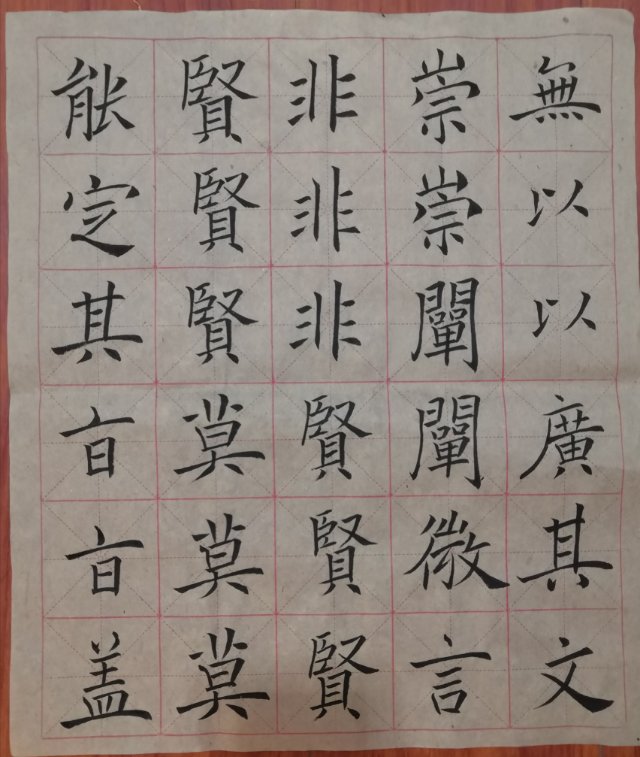 無以以廣其文
崇崇闡闡微言
非非非賢賢賢
賢賢賢莫莫莫
能定其旨旨盖